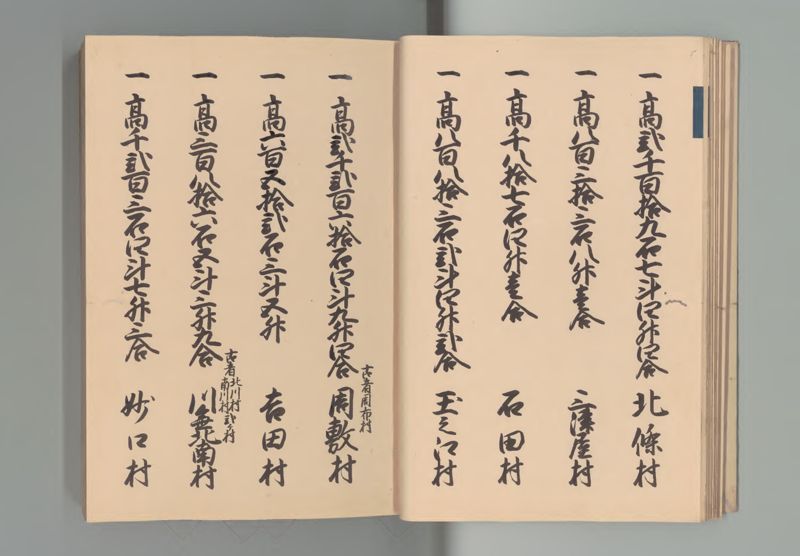 一 高弐千百拾九石七斗四升四合 北條村
一 高八百三拾三石八升壱合 三津屋村
一 高千八拾七石四升壱合 石田村
一 高八百八拾三石弐斗四升弐合 玉之江村
一 高弐千弐百六拾石四斗九升四合 古者周布村 周敷村
一 高六百五拾弐石三斗五升 吉田村
一 高三百八拾六石五斗三升九合 古者北川村南川村弐ケ村 川北南村
一 高千弐百三石四斗七升三合 妙口村